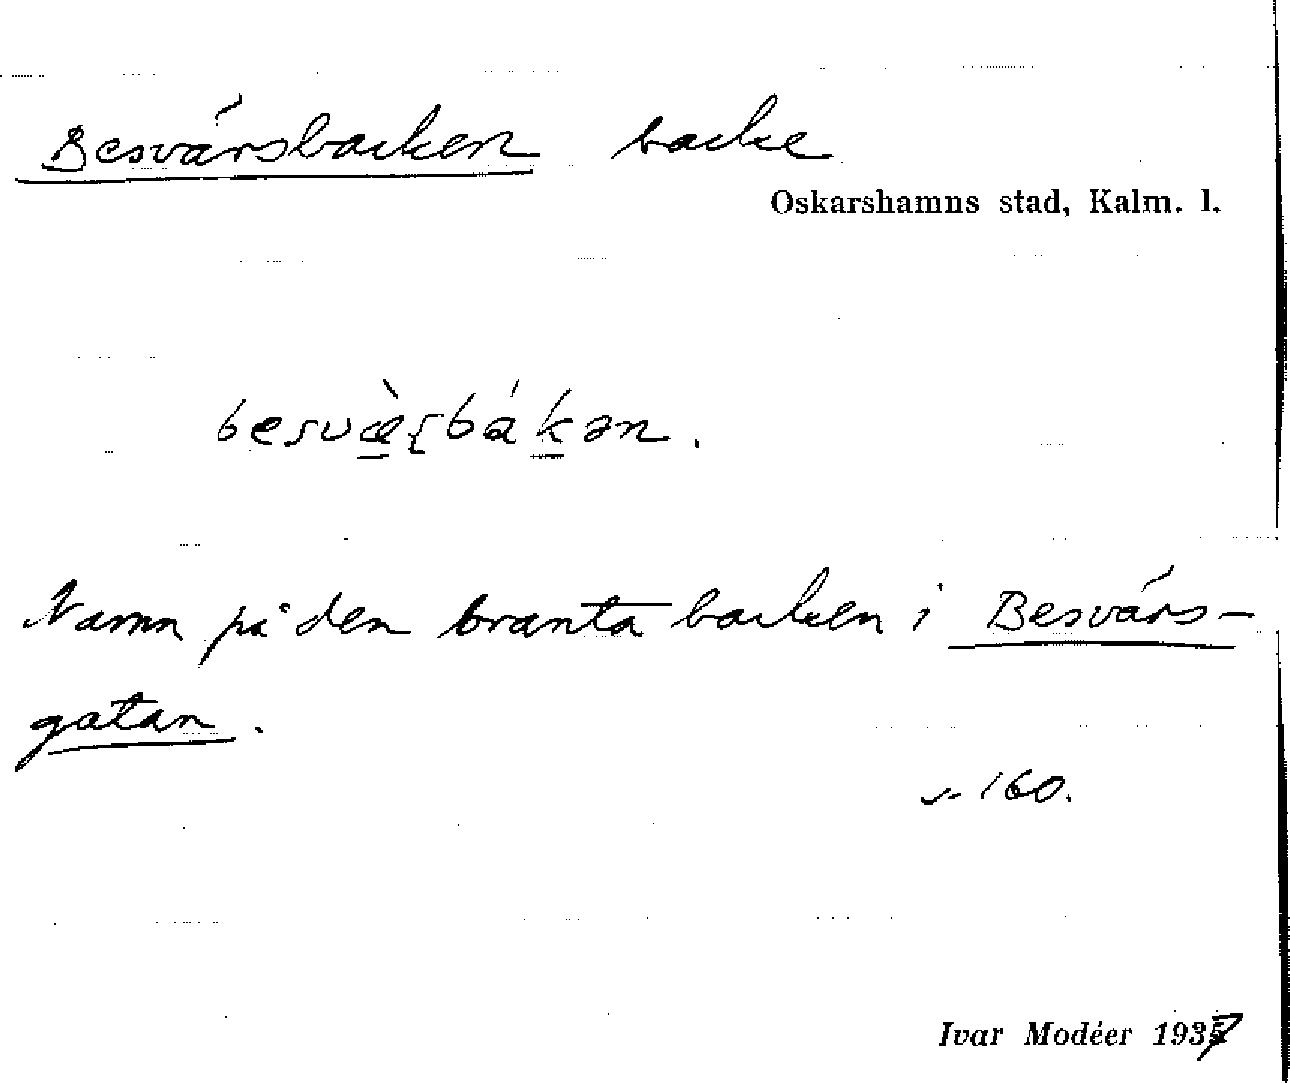 Besvärsbacken backe
Oskarshamns stad, Kalm. l.
Namn på den branta backen i Besvärs-
gatan.
160.
Ivar Modéer 1937